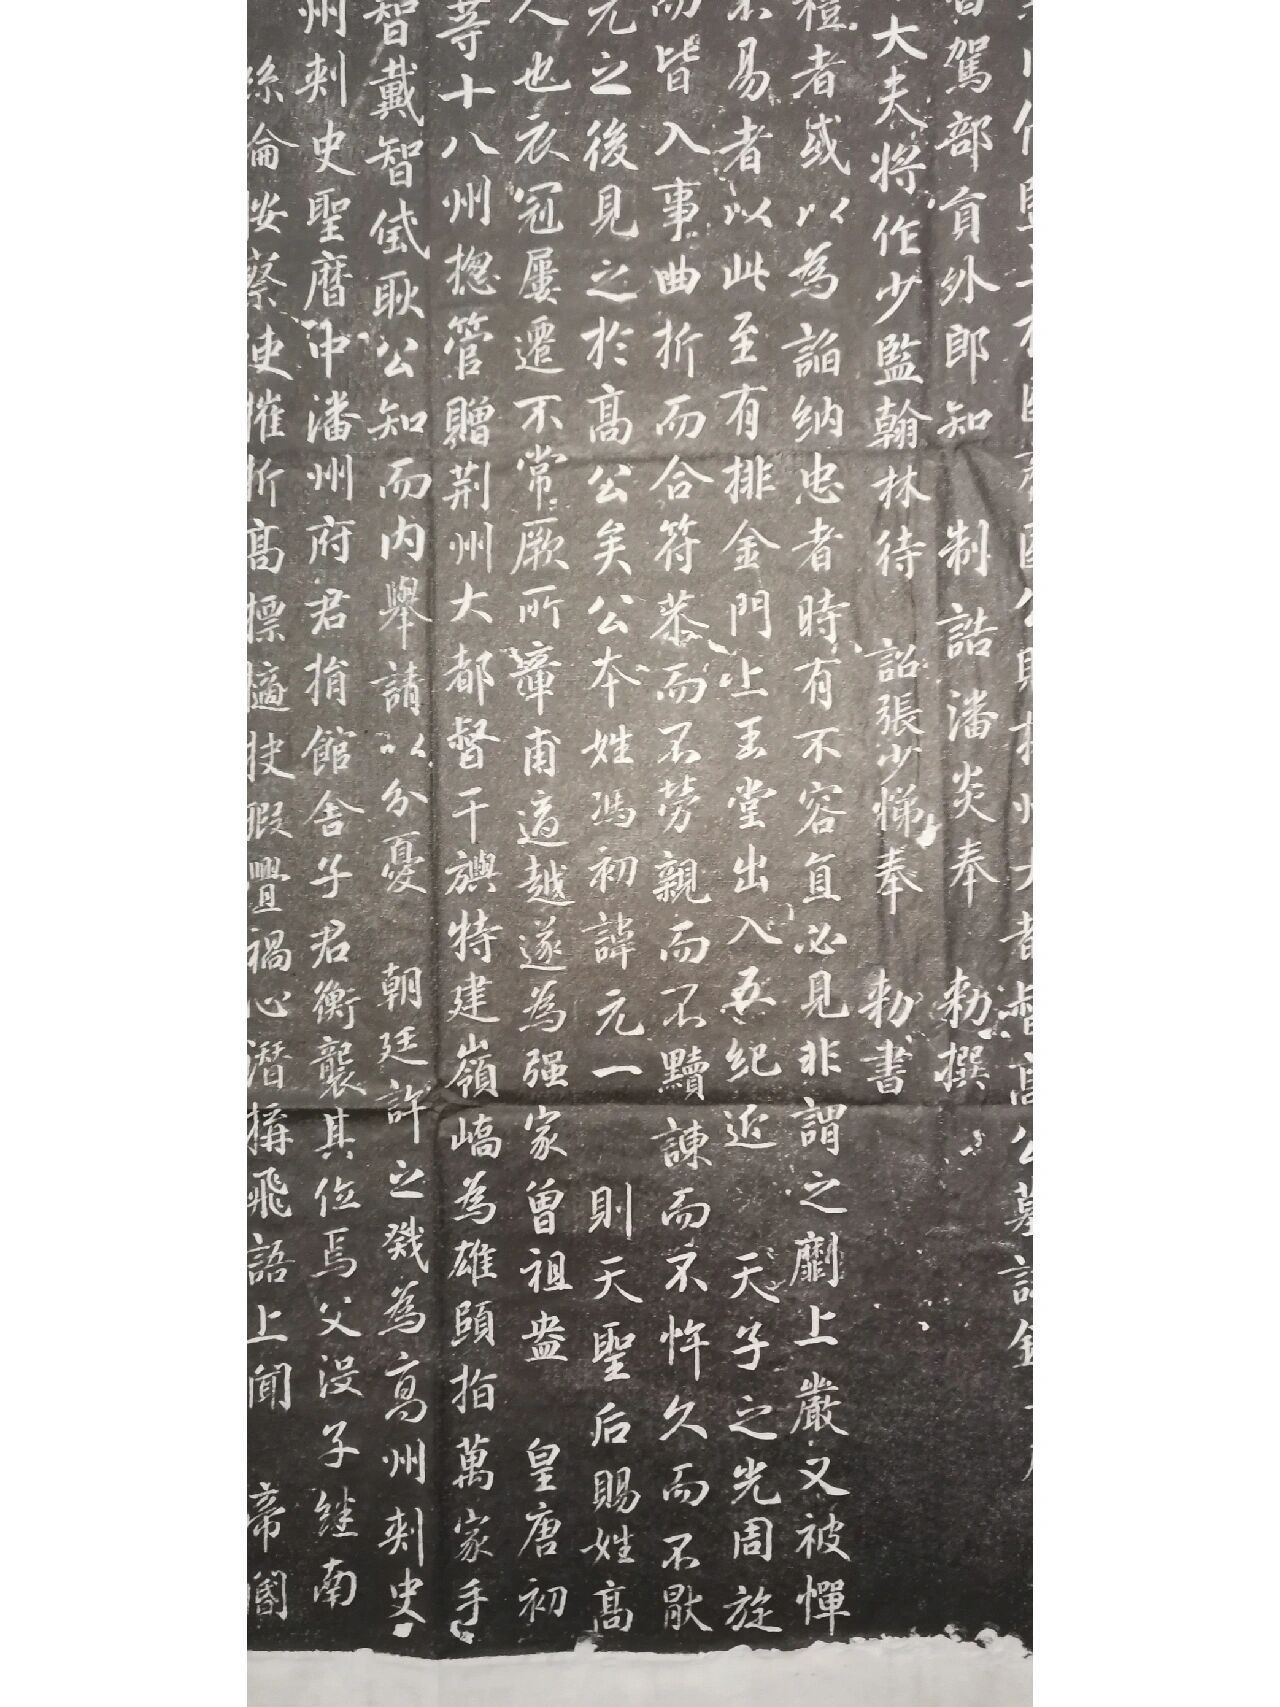 監上柱國齊國公贈揚州大都督高公墓誌銘
駕部員外郎知 制誥潘炎奉 勅撰
大夫將作少監翰林待 詔張少悌奉 勅書
禮者或以為諂納忠者時有不容直必見非謂之劘上嚴又被憚
不易者以此至有排金門上玉堂出入五紀近 天子之光周旋
而皆入事曲折而合符恭而不勞親而不黷諫而不忤久而不厭
元之後見之於高公矣公本姓馮初諱元一 則天聖后賜姓高
人也衣冠屢遷不常厥所章甫適越遂為强家曾祖盎 皇唐初
等十八州揔管贈荆州大都督干旟特建嶺嶠為雄頤指萬家手
智戴智彧耿公知而内舉請以分憂 朝廷許之戣為高州刺史
州刺史聖曆中潘州府君捐館舍子君衡襲其位焉父没子继南
絲綸按察使摧折高標擿抉瑕舋禍心潛搆飛語上聞 帝閽